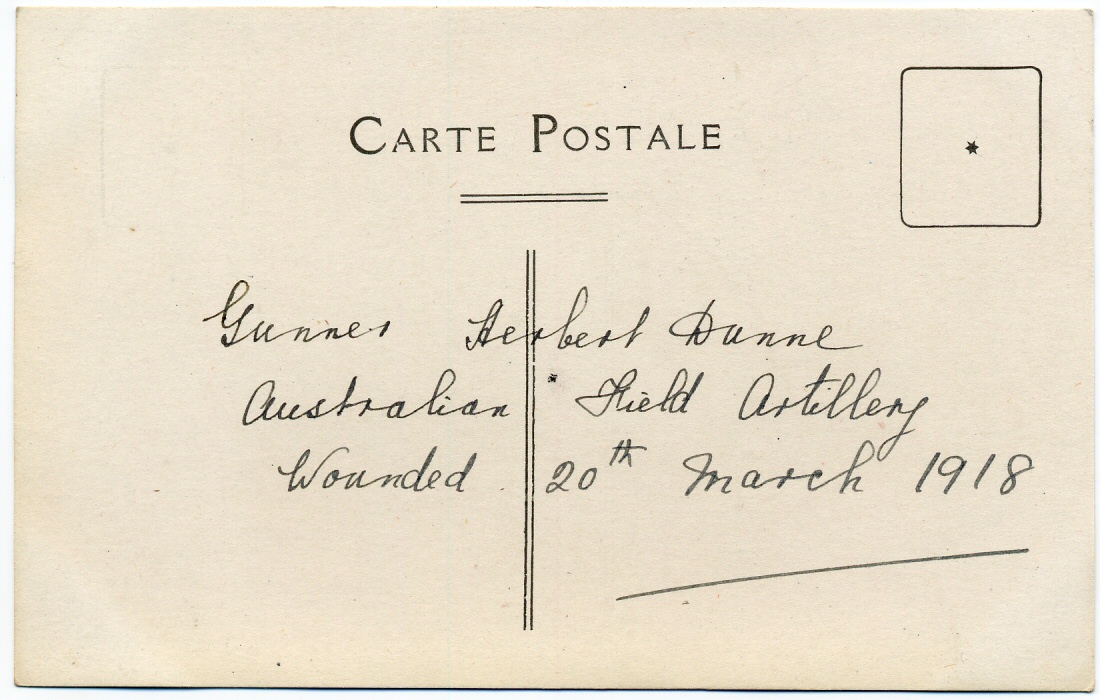 CARTE POSTALE
Gunner Herbert Dunne
Australian Field Artillery
Wounded 20th March 1918